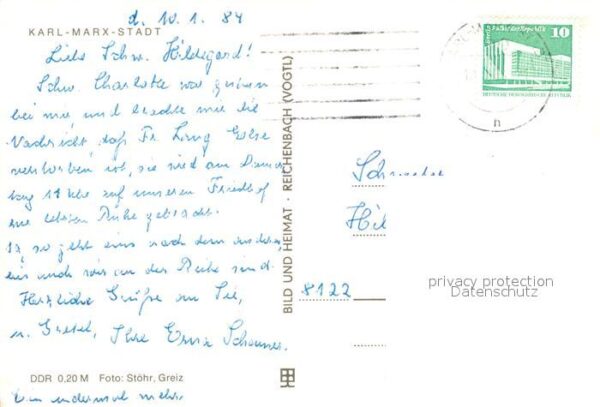 d. 10.1.84
KARL-MARX-STADT
Liebe Schw. Hildegard!
Schw. Charlotte war gestern
bei mir und brachte mir die
Nachricht, daß Fr. Lang
verstorben ist, sie wird am
11 Uhr auf unseren Friedhof
zur letzten Ruhe gebracht.
Ja, so geht eins nach dem anderen
bis auch wir an der Reihe sind.
Herzliche Grüße an Sie,
u. Gretel, Ihre Erna
DDR 0,20 M Foto: Stöhr, Greiz
Ein andermal mehr.
BILD UND HEIMAT · REICHENBACH (VOGTL)
10
Berlin, Palast der Republik
DEUTSCHE DEMOKRATISCHE REPUBLIK
n
Schwester
Hil
8122
privacy protection
Datenschutz